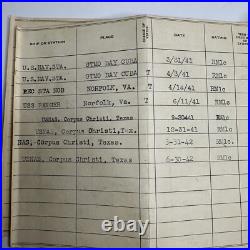 SHIP OR STATION PLACE DATE RATING
U.S.NAV.STA. GTMO BAY CUBA 3/31/41 RM1c
U.S.NAV.STA. GTMO BAY CUBA T 4/3/41 RM1c
REC STA NOB NORFOLK, VA. T 4/14/41 RM1c
USS Norfolk, Va. T 6/11/41 RM1c
USNAS, Corpus Christi, Texas 9-30-41 RM1c
USNAS, Corpus Christi, Tex. 12-31-41 RM1c
NAS, Corpus Christi, Texas 3-31-42 RM1c
USNAS, Corpus Christi, Texas 6-30-42 RM1c